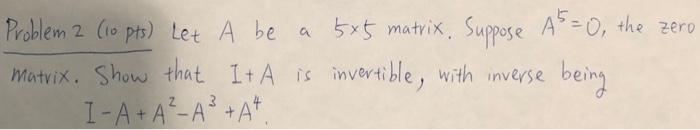 Problem 2 (10 pts) Let A be a 5×5 matrix. Suppose A⁵=0, the zero
matrix. Show that I+A is invertible, with inverse being
I-A+A²-A³+A⁴.